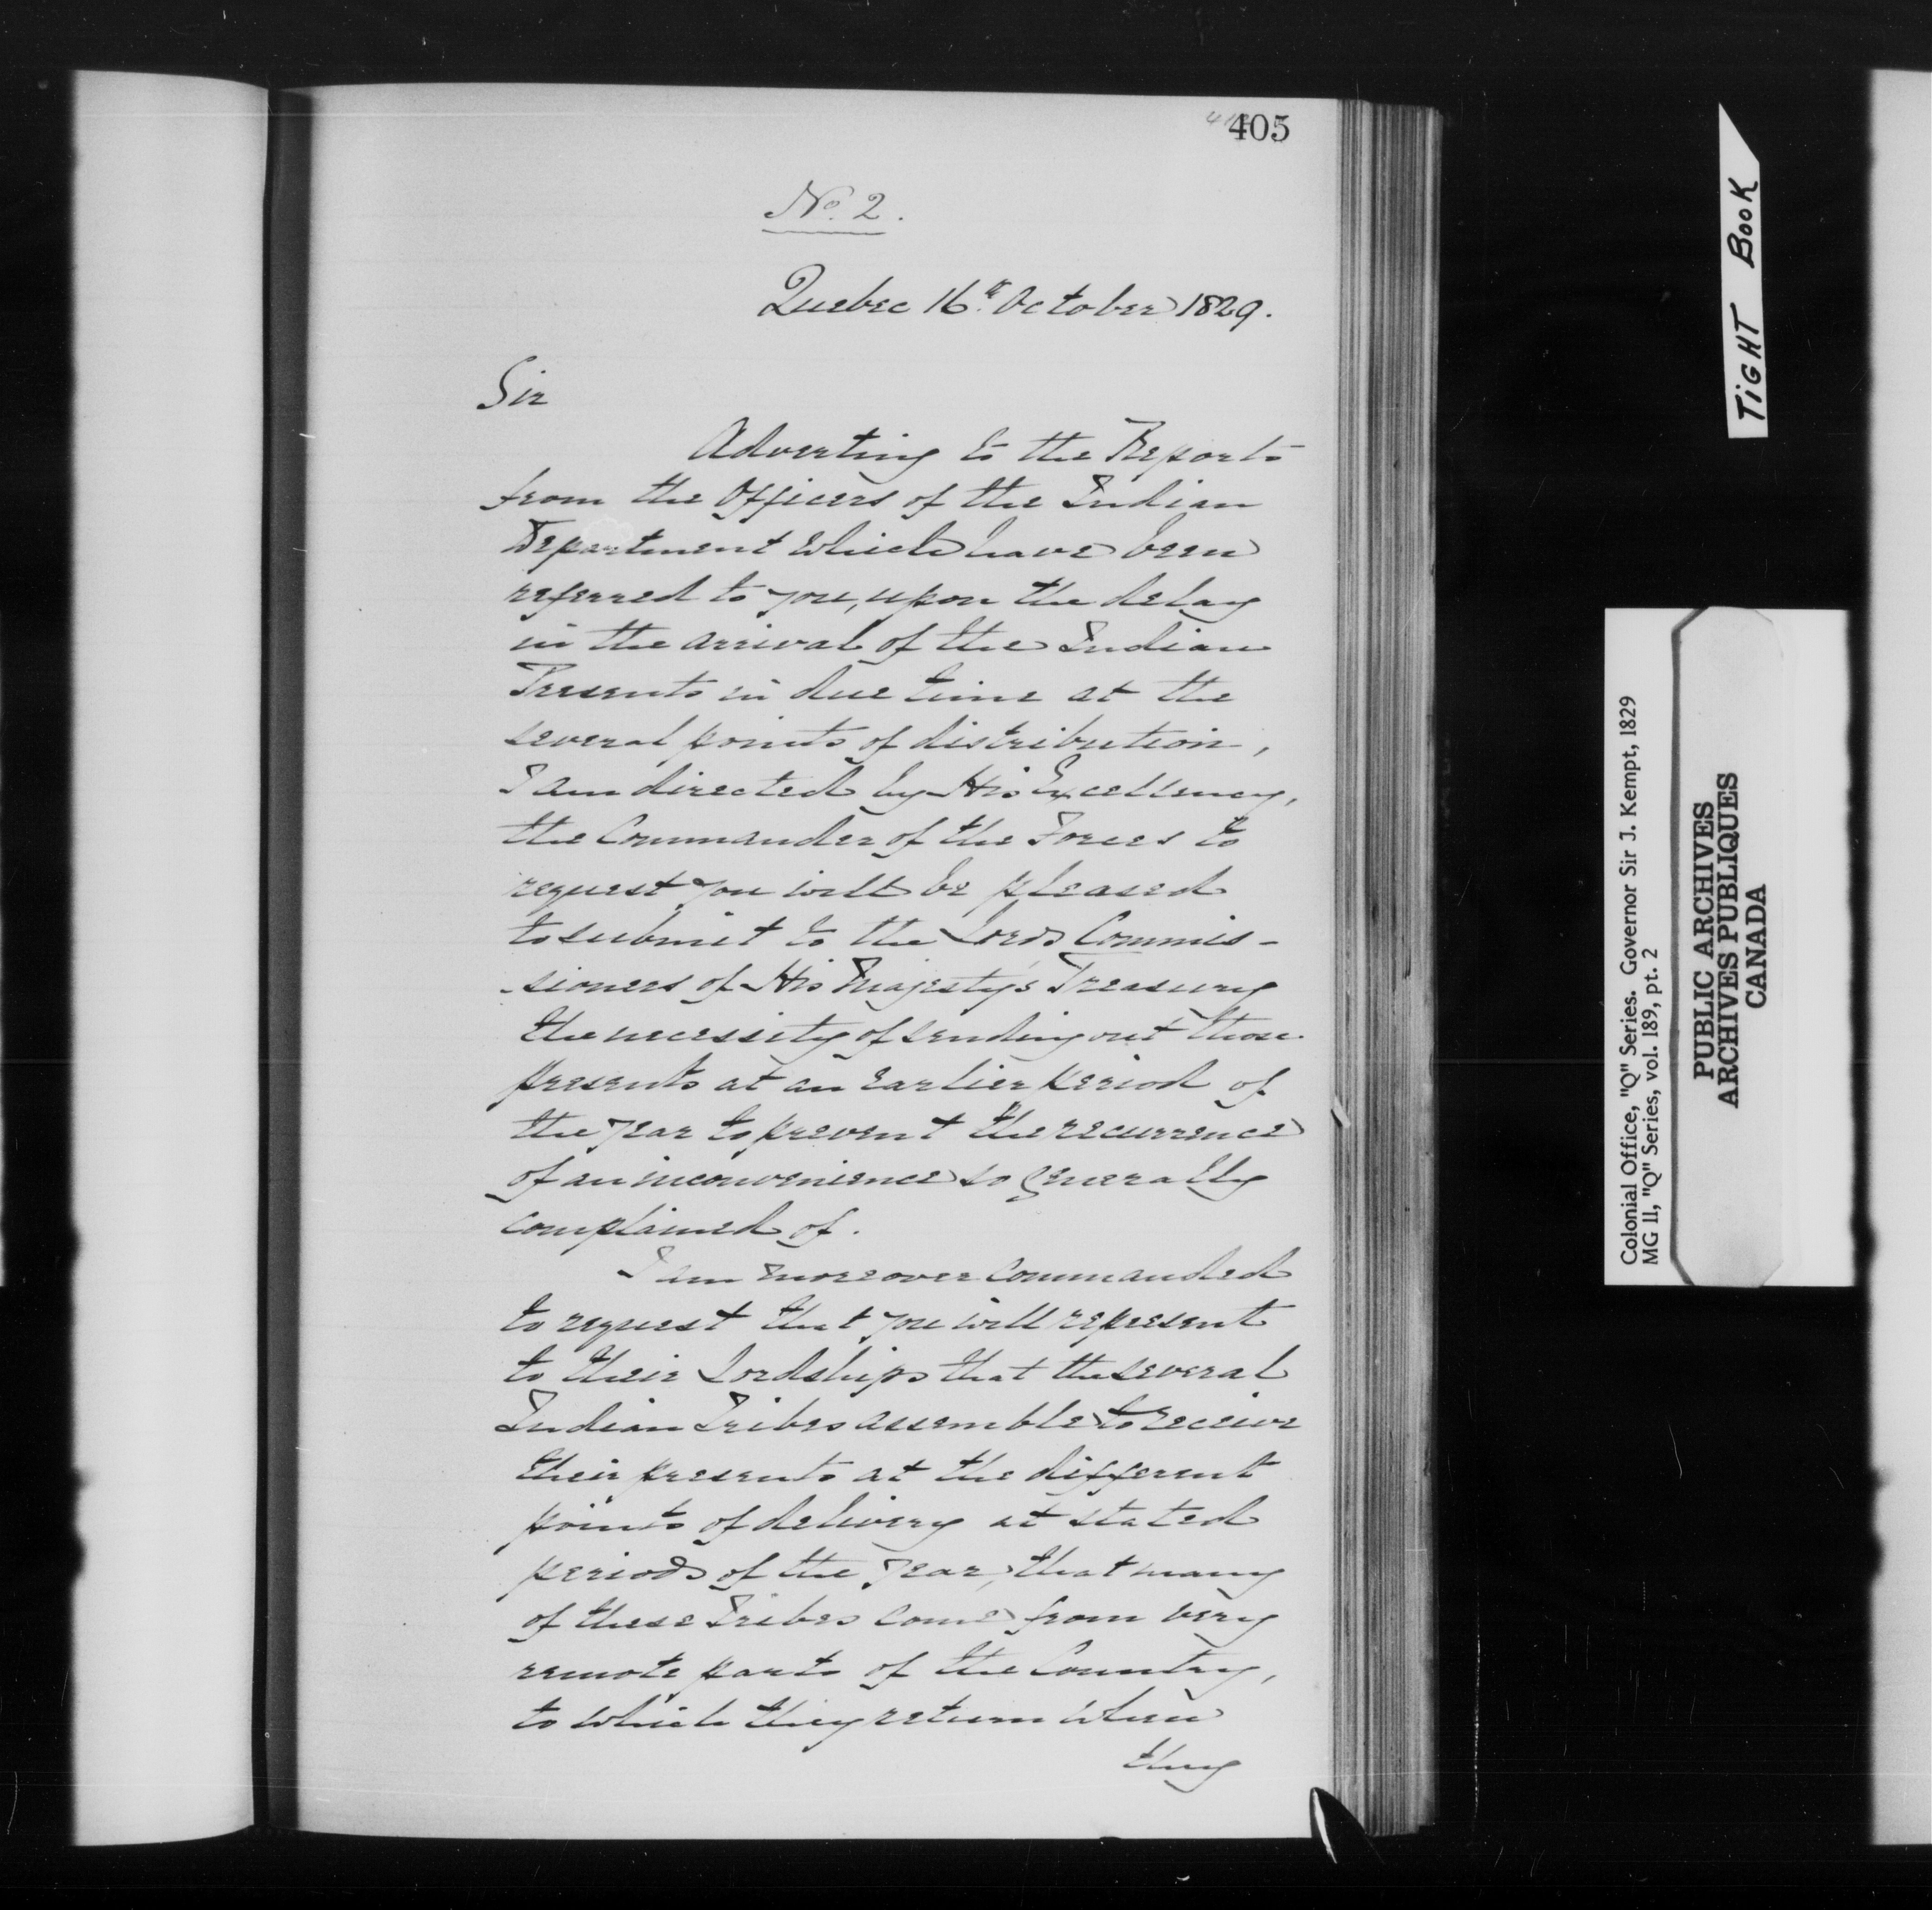 405
No. 2.
Quebec 16th. October 1829.
Sir
Adverting to the Reports
from the Officers of the Indian
Department which have been
referred to you, upon the delay
in the arrival of the Indian
Presents in due time at the
several points of distribution,
I am directed by His Excellency,
the Commander of the Forces to
request you will be pleased
to submit to the Lords Commis-
-sioners of His Majesty's Treasury
the necessity of sending out those
presents at an earlier period of
the year to prevent the recurrence
of an inconvenience so generally
complained of.
I am moreover commanded
to request that you will represent
to their Lordships that the several
Indian Tribes assemble to receive
their presents at the different
points of delivery at stated
periods of the year, that many
of these Tribes come from very
remote parts of the Country,
to which they return when
they
TIGHT BOOK
Colonial Office, "Q" Series. Governor Sir J. Kempt, 1829
MG 11, "Q" Series, vol. 189, pt. 2
PUBLIC ARCHIVES
ARCHIVES PUBLIQUES
CANADA